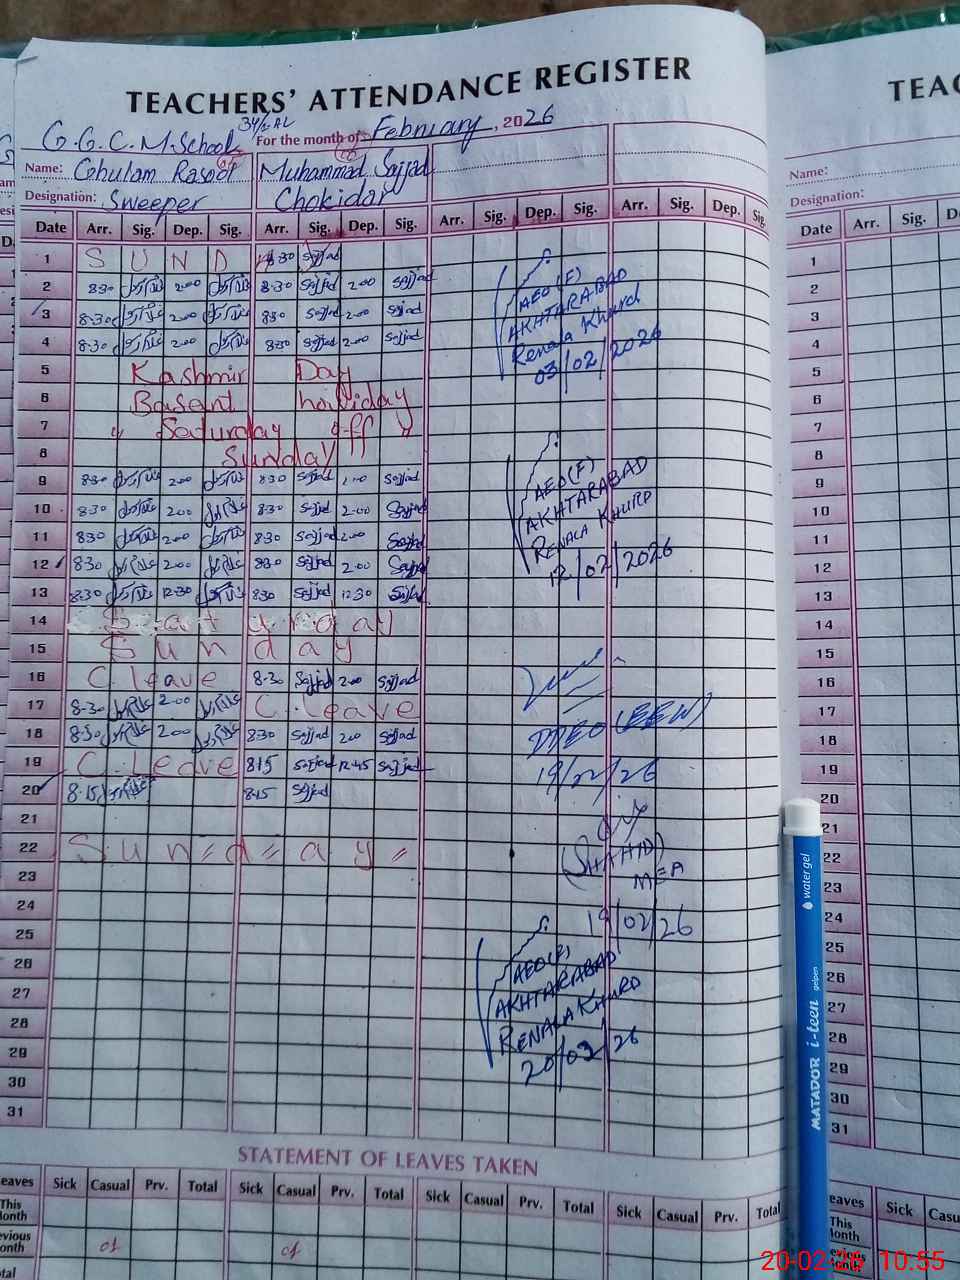 TEACHERS' ATTENDANCE REGISTER
G.G.C.M.School 34/2AL For the month of February, 2026
Name: Ghulam Rasool Muhammad Sajjad
Designation: Sweeper Chokidar
Date Arr. Sig. Dep. Sig. Arr. Sig. Dep. Sig. Arr. Sig. Dep. Sig. Arr. Sig. Dep. Sig.
1 S U N D 8-30 Sajjad
2 8-30 2-00 8-30 Sajjad 2-00 Sajjad
3 8-30 2-00 8-30 Sajjad 2-00 Sajjad
4 8-30 2-00 8-30 Sajjad 2-00 Sajjad
5 Kashmir Day
6 Basant holiday
7 " Saturday off "
8 Sunday
9 8-30 2-00 8-30 Sajjad Sajjad
10 8-30 2-00 8-30 Sajjad 2-00 Sajjad
11 8-30 2-00 8-30 Sajjad 2-00 Sajjad
12 8-30 2-00 8-30 Sajjad 2-00 Sajjad
13 8-30 12-30 8-30 Sajjad 12-30 Sajjad
14 Saturday
15 Sunday
16 C. leave 8-30 Sajjad 2-00 Sajjad
17 8-30 2-00 C. leave
18 8-30 2-00 8-30 Sajjad 2-00 Sajjad
19 C. Leave 8-15 Sajjad 12-45 Sajjad
20 8-15 8-15 Sajjad
21
22 S u n = d = a y =
23
24
25
26
27
28
29
30
31
AEO (F)
AKHTARABAD
Renala Khurd
03/02/2026
AEO (F)
AKHTARABAD
RENALA KHURD
12/02/2026
DDEO (EEW)
19/02/26
(SHAHID)
MEA
19/02/26
AEO (F)
AKHTARABAD
RENALA KHURD
20/02/26
STATEMENT OF LEAVES TAKEN
eaves Sick Casual Prv. Total Sick Casual Prv. Total Sick Casual Prv. Total Sick Casual Prv. Total
This
onth
evious
onth 01 01
tal
TEAC
Name:
Designation:
Date Arr. Sig. D
1
2
3
4
5
6
7
8
9
10
11
12
13
14
15
16
17
18
19
20
21
22
23
24
25
26
27
28
29
30
31
eaves Sick Casu
This
Month
water gel
MATADOR i-teen gelpen
20-02-26 10:55